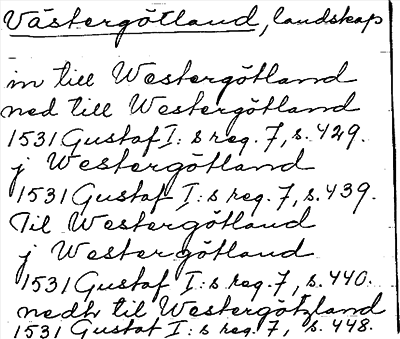 Västergötland, landskap
in till Westergötland
ned till Westergötland
1531 Gustaf I:s reg. 7, s. 429.
j Westergötland
1531 Gustaf I:s reg. 7, s. 439.
Til Westergötland
j Westergötland
1531 Gustaf I:s reg. 7, s. 440.
nedh til Westergötzland
1531 Gustaf I:s reg. 7, s. 448.